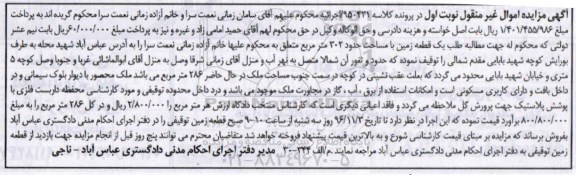 آگهی مزایده اموال غیر منقول نوبت اول در پرونده کلاسه ۹۵۰۴۳۱ اجرائیه محکوم علیهم آقای سامان زمانی نعمت سرا و خانم آزاده زمانی نعمت سرا محکوم گردیده اند به پرداخت
مبلغ ۱/۴۰۱/۴۵۵/۹۸۶ ریال بابت اصل خواسته و هزینه دادرسی و حق الوکاله وکیل در حق محکوم لهم آقای حمید امامی زاد و غیره و نیز به پرداخت مبلغ ۶۰/۰۰۰/۰۰۰ ریال بابت نیم عشر
دولتی که محکوم له جهت مطالبه طلب یک قطعه زمین با مساحت حدود ۳۰۲ متر مربع متعلق به محکوم علیها خانم آزاده زمانی نعمت سرا را به آدرس عباس آباد شهید محله به طرف
بورایش کوچه شهید بابایی مقدم شمالی را توقیف نموده که حدود و ثغور آن شمالا متصل به نهر آب و منزل آقای زمانی شرقا وصل به منزل آقای ابوالماشائی غربا و جنوبا وصل کوچه ۵
متری و خیابان شهید بابایی محدود می گردد که بعلت عقب نشینی در کوچه در سمت جنوب مساحت ملک در حال حاضر ۲۸۶ متر مربع می باشد ملک محصور با دیوار بلوک سیمانی و در
داخل بافت و دارای کاربری مسکونی است و امکانات استفاده از برق ، آب ، گاز در مجاورت ملک موجود می باشد و درد داخل محدوده توقیفی و مورد کارشناسی محفظه داربست فلزی با
پوشش پلاستیک جهت پرورش گل ملاحظه می گردد و فاقد اعیانی دیگری است که کارشناس منتخب دادگاه ارزش هر متر مربع را ۲/۸۰۰/۰۰۰ ریال و در کل ۲۸۶ متر مربع را به مبلغ
۸۰۰/۸۰۰/۰۰۰ برآورد قیمت نموده که این اجرا در نظر دارد تا تاریخ ۹۶/۱۱/۳ روز سه شنبه از ساعت ۱۰-۹ صبح قطعه زمین توقیفی را در دفتر اجرای احکام مدنی دادگستری عباس آباد
بفروش برساند که مزایده بر مبنای قیمت کارشناسی شروع و به بالاترین قیمت پیشنهاد فروخته خواهد شد متقاضیان محترم می توانند پنج روز قبل از انجام مزایده جهت بازدید از قطعه
زمین توقیفی به دفتر اجرای احکام مدنی دادگستری عباس آباد مراجعه نمایند. مدیر دفتر اجرای احکام مدنی دادگستری عباس آباد - تاجی